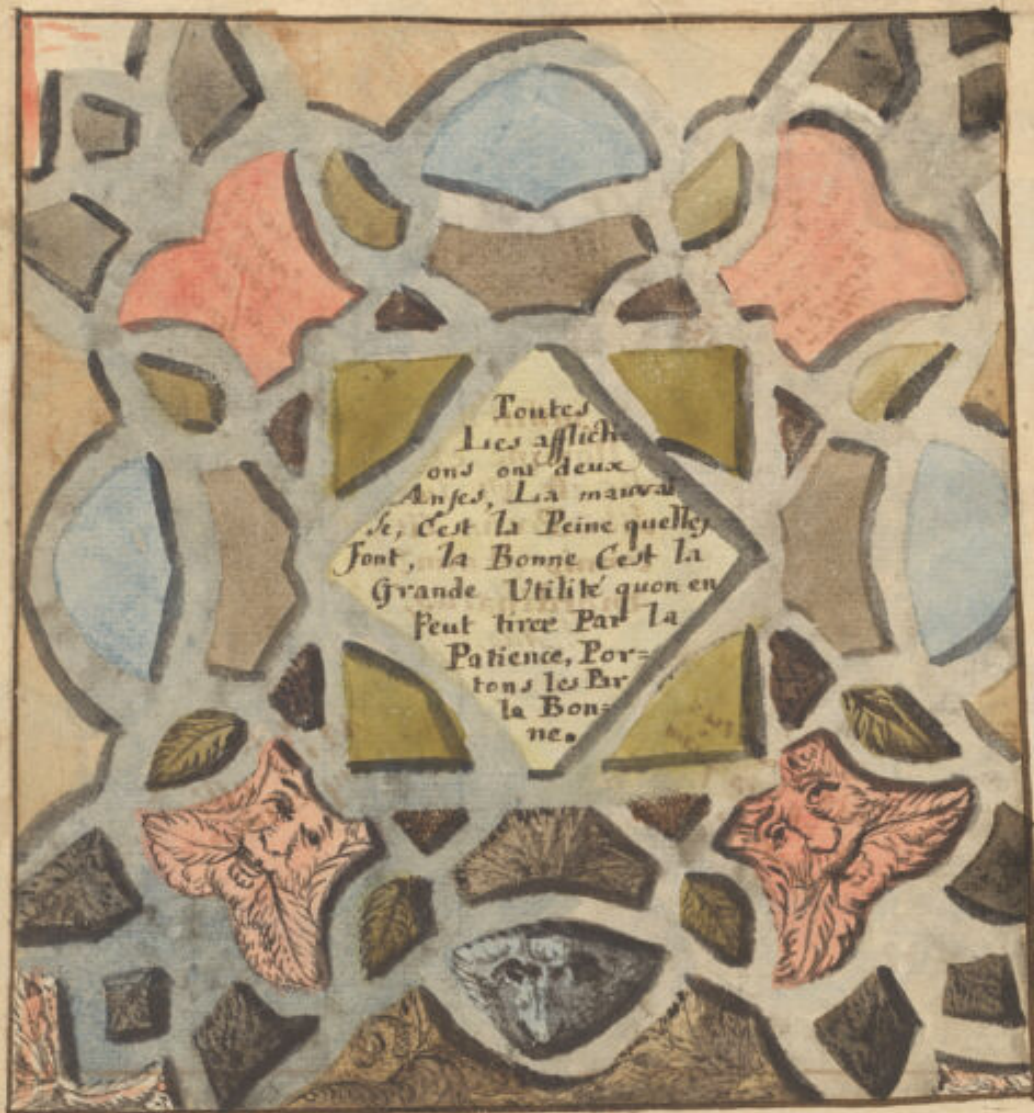 Toutes
Les afflicti-
ons ont deux
Anses, La mauvai
se, C'est la Peine quelles
font, la Bonne C'est la
Grande Utilité quon en
Peut tirer Par la
Patience, Por=
tons les Par
la Bon=
ne.